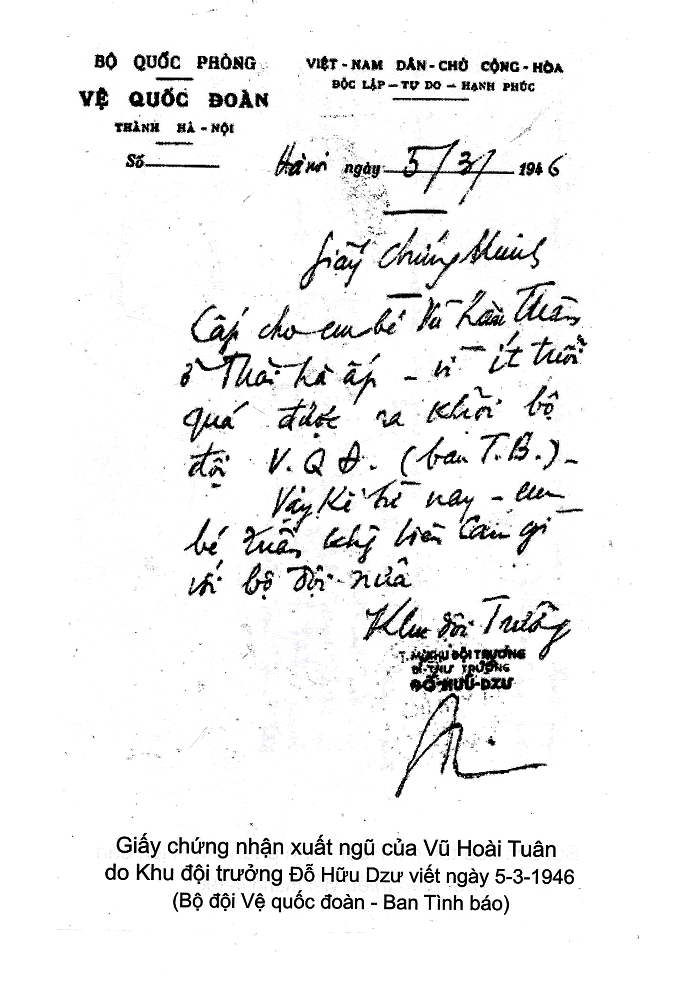 BỘ QUỐC PHÒNG
VỆ QUỐC ĐOÀN
THÀNH HÀ - NỘI
Số
VIỆT - NAM DÂN - CHỦ CỘNG - HÒA
ĐỘC LẬP - TỰ DO - HẠNH PHÚC
Hà nội ngày 5/3/ 1946
Giấy chứng minh
Cấp cho em bé Vũ Hoài Tuân
ở Thái hà ấp - vì ít tuổi
quá được ra khỏi bộ
đội V.Q.Đ. (ban T.B.) -
Vậy kể từ nay - em
bé Tuân khg liên can gì
với bộ đội nữa
Khu đội Trưởng
KHU ĐỘI TRƯỞNG
ĐỖ-HỮU-DZƯ
Giấy chứng nhận xuất ngũ của Vũ Hoài Tuân
do Khu đội trưởng Đỗ Hữu Dzư viết ngày 5-3-1946
(Bộ đội Vệ quốc đoàn - Ban Tình báo)